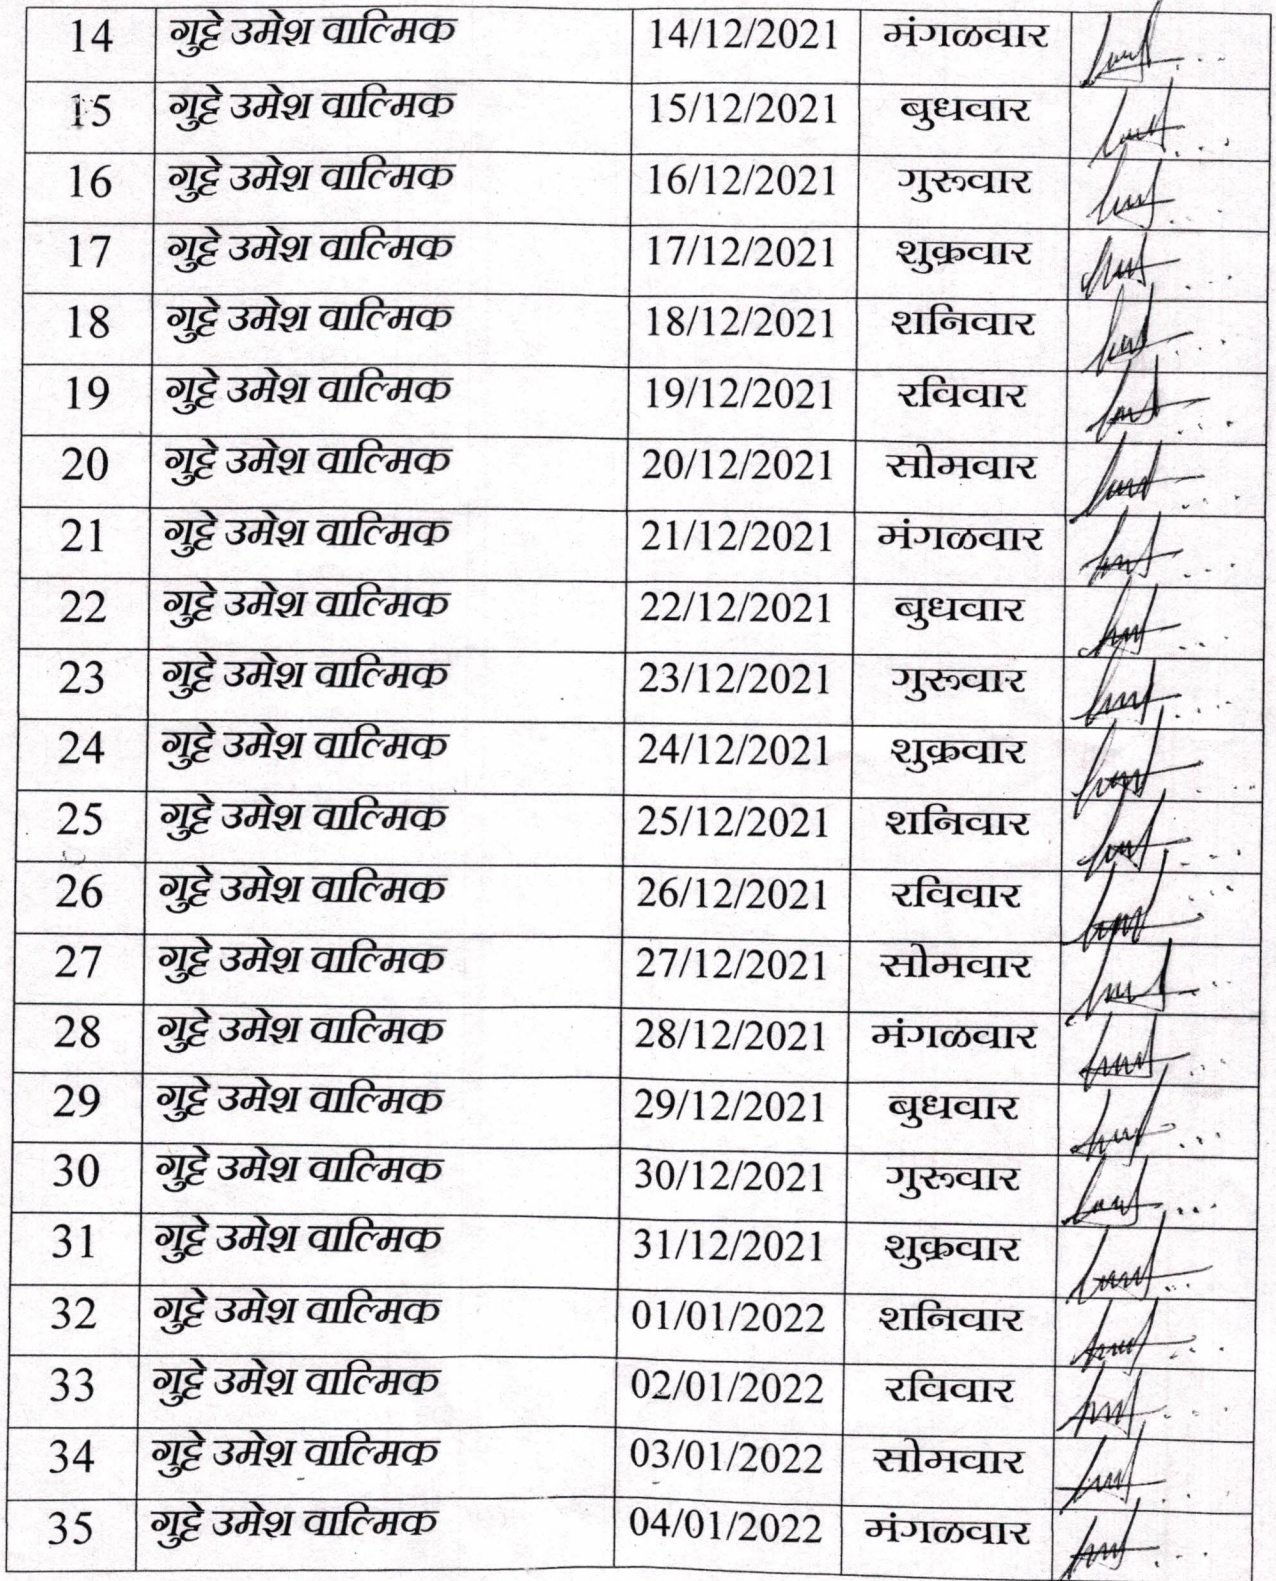 14 गुट्टे उमेश वाल्मिक 14/12/2021 मंगळवार
15 गुट्टे उमेश वाल्मिक 15/12/2021 बुधवार
16 गुट्टे उमेश वाल्मिक 16/12/2021 गुरूवार
17 गुट्टे उमेश वाल्मिक 17/12/2021 शुक्रवार
18 गुट्टे उमेश वाल्मिक 18/12/2021 शनिवार
19 गुट्टे उमेश वाल्मिक 19/12/2021 रविवार
20 गुट्टे उमेश वाल्मिक 20/12/2021 सोमवार
21 गुट्टे उमेश वाल्मिक 21/12/2021 मंगळवार
22 गुट्टे उमेश वाल्मिक 22/12/2021 बुधवार
23 गुट्टे उमेश वाल्मिक 23/12/2021 गुरूवार
24 गुट्टे उमेश वाल्मिक 24/12/2021 शुक्रवार
25 गुट्टे उमेश वाल्मिक 25/12/2021 शनिवार
26 गुट्टे उमेश वाल्मिक 26/12/2021 रविवार
27 गुट्टे उमेश वाल्मिक 27/12/2021 सोमवार
28 गुट्टे उमेश वाल्मिक 28/12/2021 मंगळवार
29 गुट्टे उमेश वाल्मिक 29/12/2021 बुधवार
30 गुट्टे उमेश वाल्मिक 30/12/2021 गुरूवार
31 गुट्टे उमेश वाल्मिक 31/12/2021 शुक्रवार
32 गुट्टे उमेश वाल्मिक 01/01/2022 शनिवार
33 गुट्टे उमेश वाल्मिक 02/01/2022 रविवार
34 गुट्टे उमेश वाल्मिक 03/01/2022 सोमवार
35 गुट्टे उमेश वाल्मिक 04/01/2022 मंगळवार